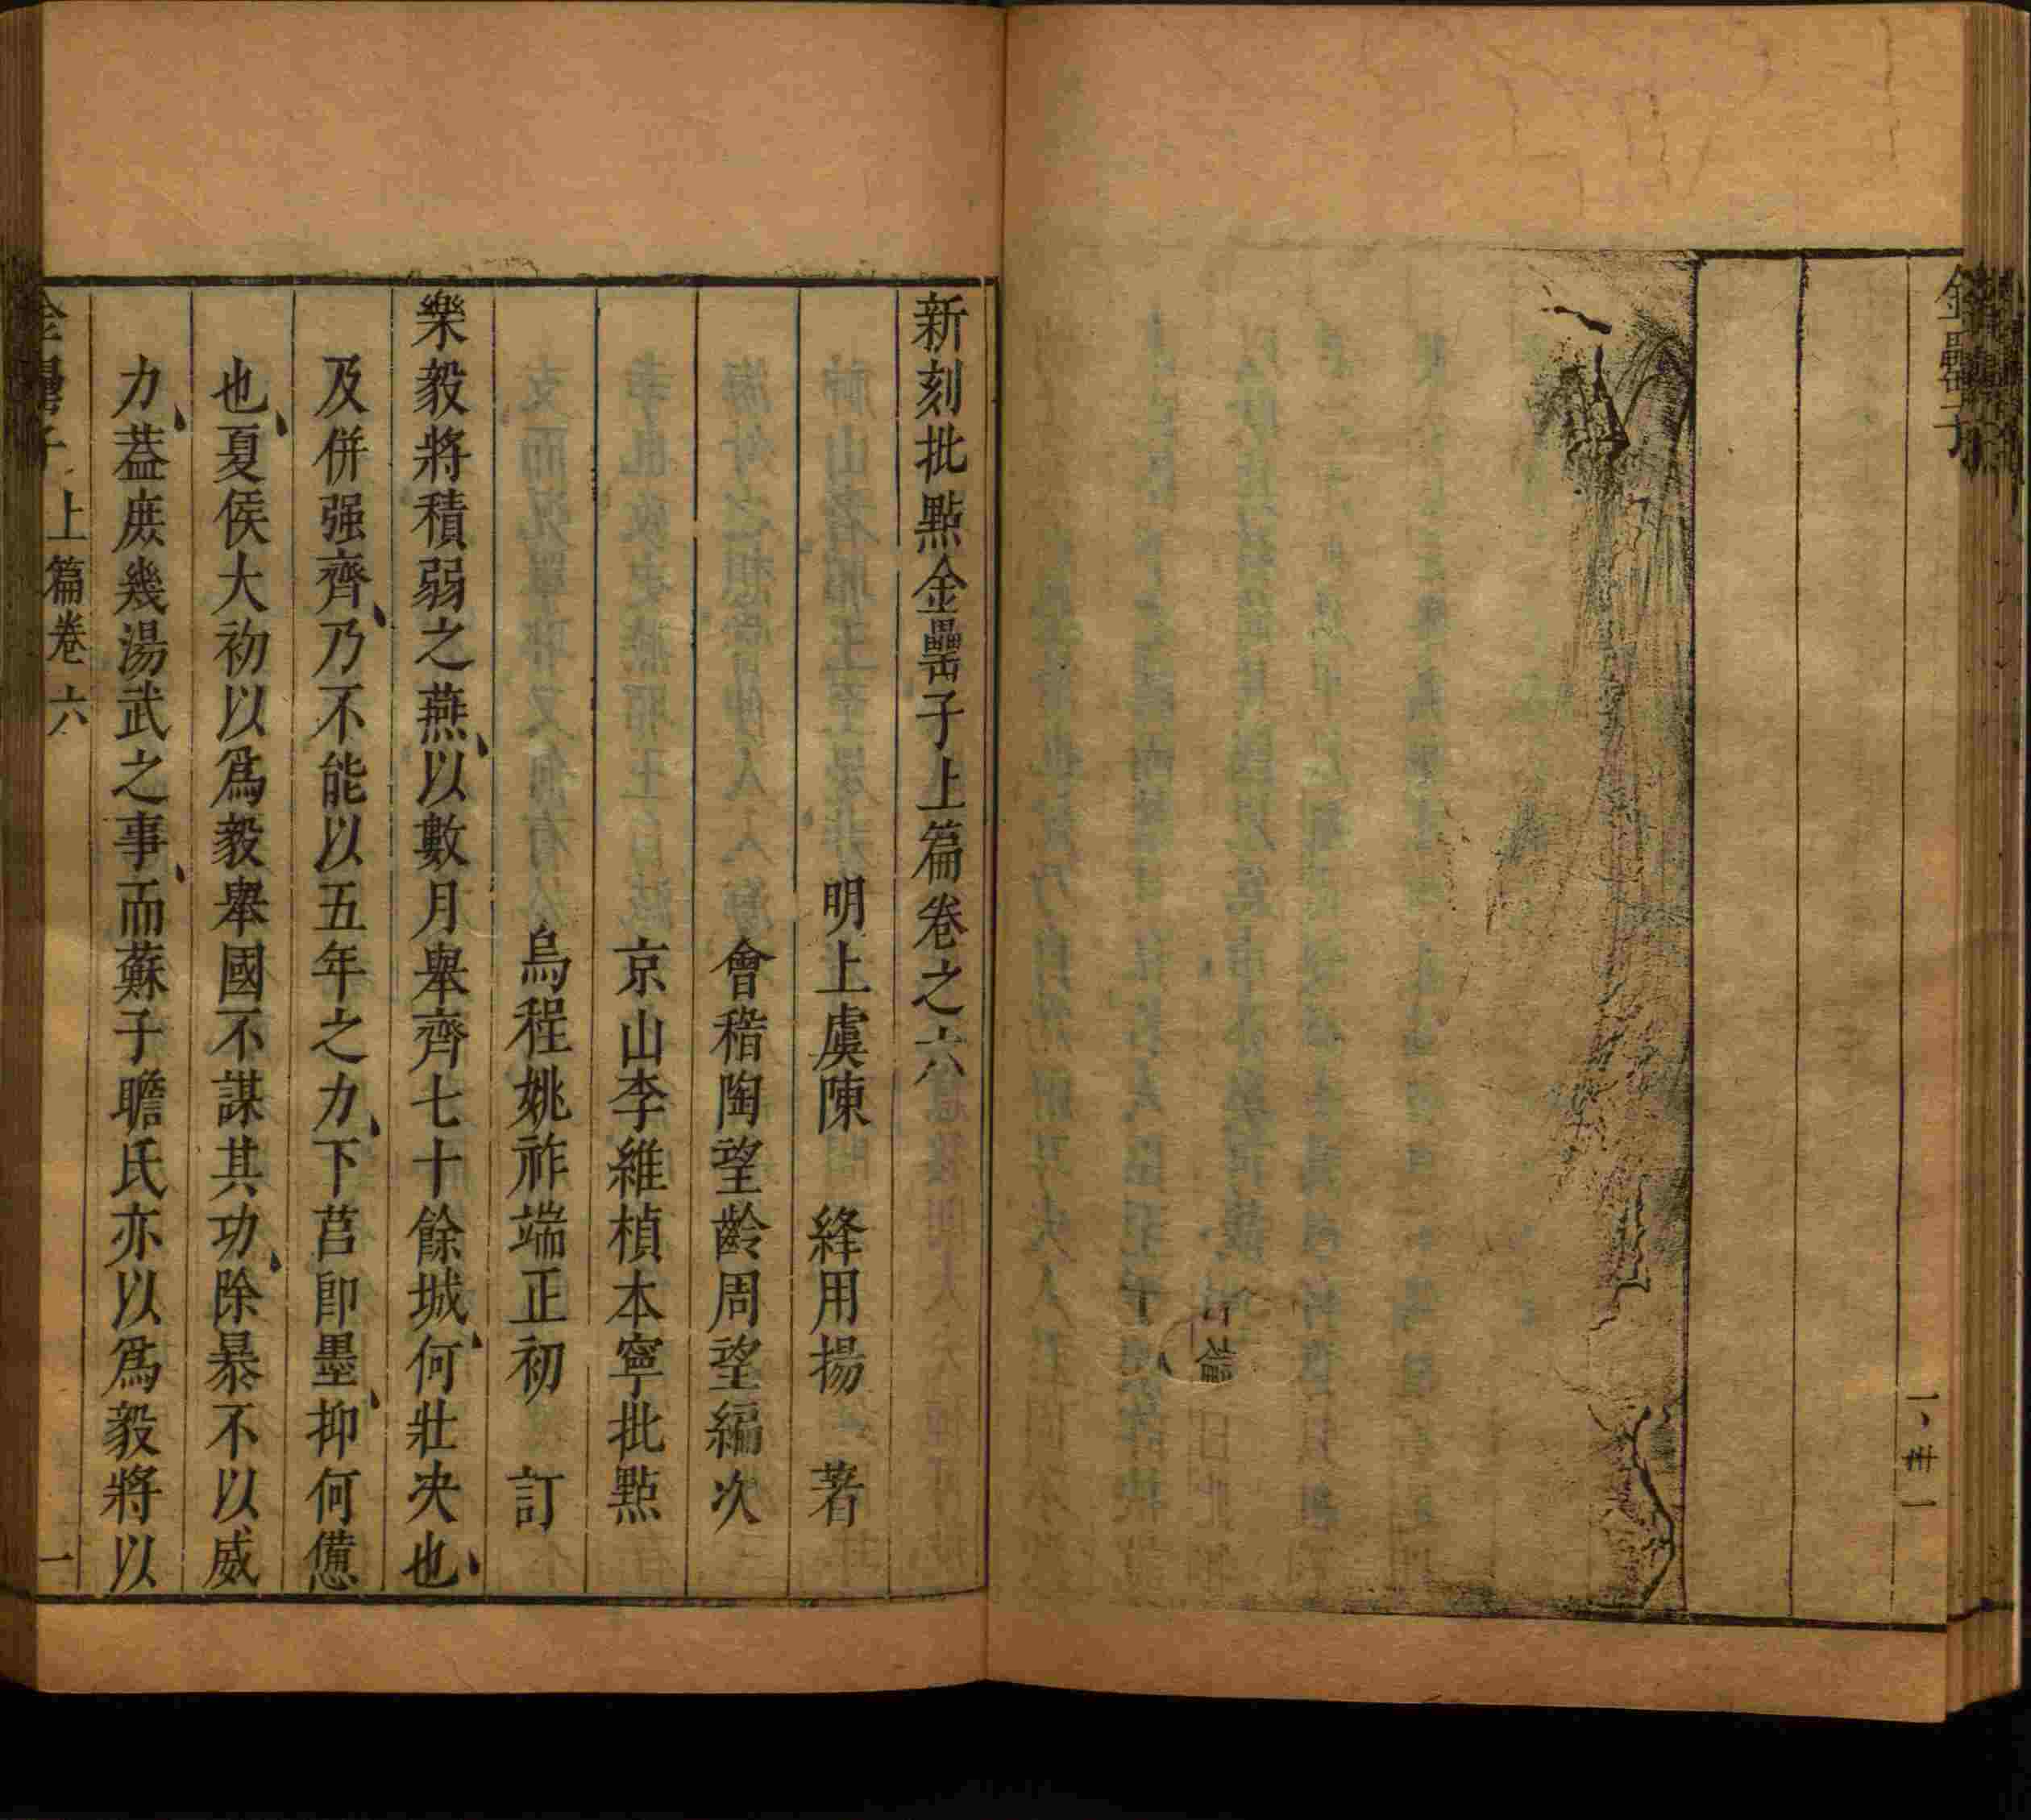 金罍子
新刻批點金罍子上篇卷之六
明上虞陳 絳用揚 著
會稽陶望齡周望編次
京山李維楨本寧批點
烏程姚祚端正初 訂
樂毅將積弱之燕、以數月舉齊七十餘城、何壯决也、
及併强齊、乃不能以五年之力、下莒卽墨、抑何憊
也、夏侯大初以爲毅舉國不謀其功、除暴不以威
力、葢庶幾湯武之事、而蘇子瞻氏亦以爲毅將以
金罍子 上篇卷六 一